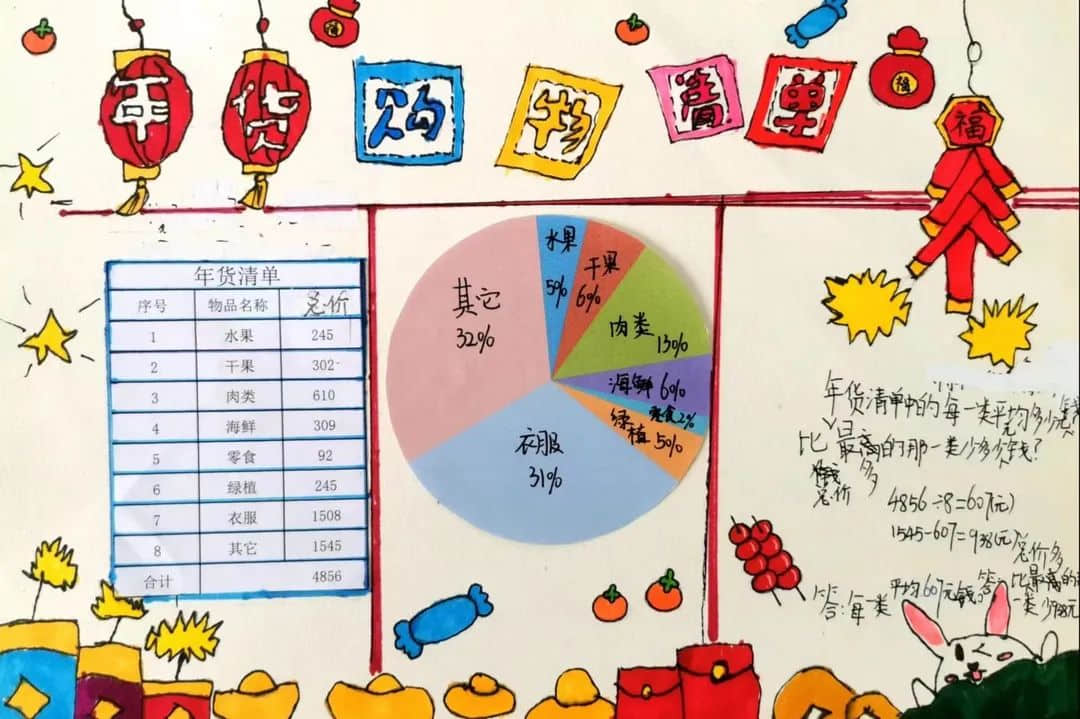 年货购物清单
福
福
福
年货清单
序号 物品名称 总价
1 水果 245
2 干果 302
3 肉类 610
4 海鲜 309
5 零食 92
6 绿植 245
7 衣服 1508
8 其它 1545
合计 4856
水果 5%
干果 6%
肉类 13%
海鲜 6%
零食 2%
绿植 5%
衣服 31%
其它 32%
年货清单中的每一类平均多少元
比最高的那一类少多少钱?
总价多
4856÷8=607(元)
1545-607=938(元)
答:每一类平均607元钱。
答:比总价最高的
一类少938元